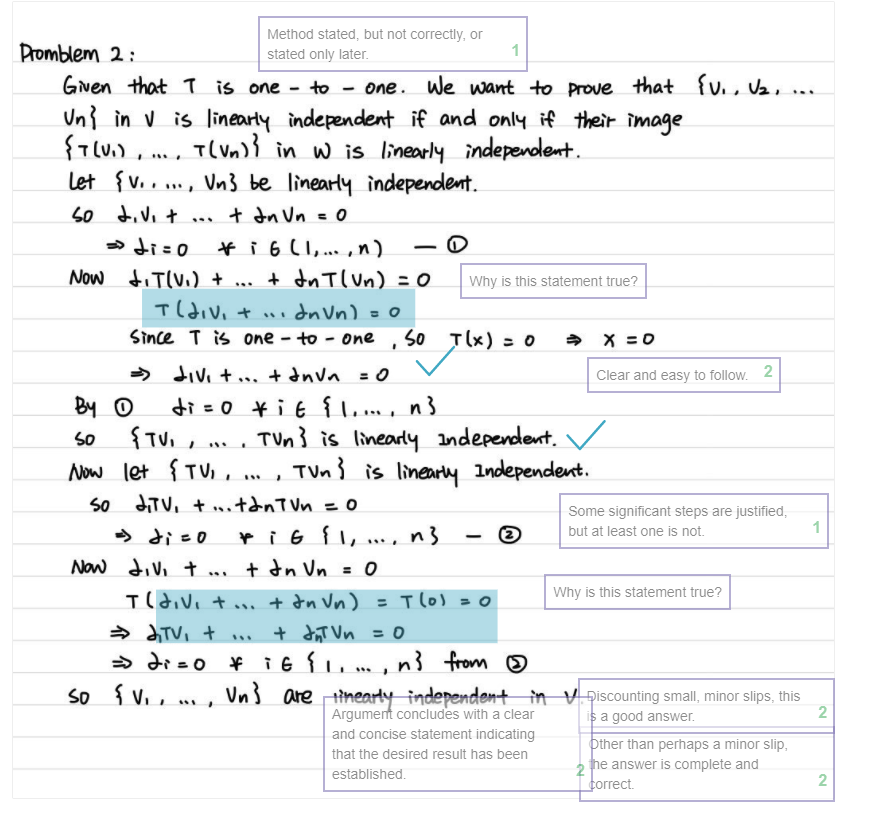 Method stated, but not correctly, or
stated only later. 1
Promblem 2 :
Given that T is one - to - one. We want to prove that {v₁, v₂, ...
vn} in V is linearly independent if and only if their image
{T(v₁), ..., T(vn)} in W is linearly independent.
Let {v₁, ..., vn} be linearly independent.
so α₁v₁ + ... + αnvn = 0
⇒ αi = 0 ∀ i ∈ (1, ..., n) — ①
Now α₁T(v₁) + ... + αnT(vn) = 0
Why is this statement true?
T(α₁v₁ + ... αnvn) = 0
Since T is one - to - one , so T(x) = 0 ⇒ x = 0
⇒ α₁v₁ + ... + αnvn = 0 ✓
Clear and easy to follow. 2
By ① αi = 0 ∀ i ∈ {1, ..., n}
so {Tv₁, ..., Tvn} is linearly Independent. ✓
Now let {Tv₁, ..., Tvn} is linearly Independent.
so α₁Tv₁ + ... + αnTvn = 0
Some significant steps are justified,
but at least one is not. 1
⇒ αi = 0 ∀ i ∈ {1, ..., n} — ②
Now α₁v₁ + ... + αnvn = 0
Why is this statement true?
T(α₁v₁ + ... + αnvn) = T(0) = 0
⇒ α₁Tv₁ + ... + αnTvn = 0
⇒ αi = 0 ∀ i ∈ {1, ..., n} from ②
so {v₁, ..., vn} are linearly independent in V.
Discounting small, minor slips, this
is a good answer. 2
Argument concludes with a clear
and concise statement indicating
that the desired result has been
established. 2
Other than perhaps a minor slip,
the answer is complete and
correct. 2